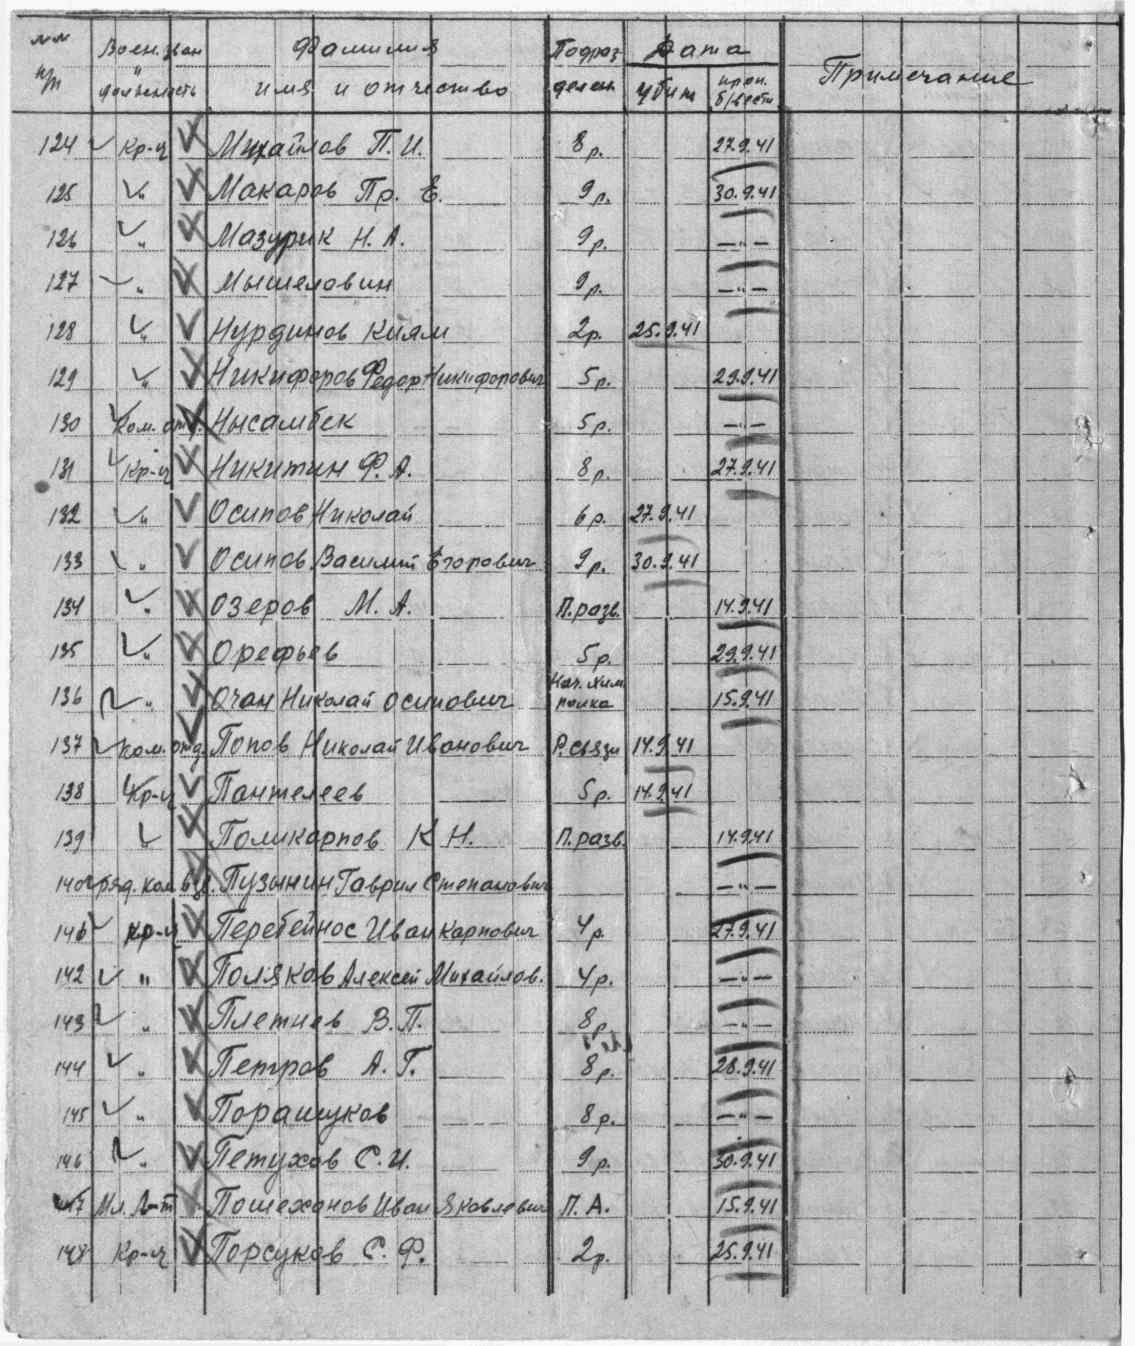 №№ п/п Воен. зван. и должность Фамилия имя и отчество Подраз делен. Дата убит проп. б/вести Примечание
124 Кр-ц Михайлов П. И. 8р. 27.9.41
125 " Макаров Пр. Е. 9р. 30.9.41
126 " Мазурик Н. А. 9р. —"—
127 " Мышеловин 9р. —"—
128 " Нурдинов Киям 2р. 25.9.41
129 " Никифоров Федор Никифорович 5р. 29.9.41
130 Ком. отд. Нысамбек 5р. —"—
131 Кр-ц Никитин Ф. А. 8р. 27.9.41
132 " Осипов Николай 6р. 27.9.41
133 " Осипов Василий Егорович 9р. 30.9.41
134 " Озеров М. А. П. разв. 14.9.41
135 " Орефьев 5р. 29.9.41
136 " Очан Николай Осипович Нач. хим. полка 15.9.41
137 Ком. отд. Попов Николай Иванович Р. связи 14.9.41
138 Кр-ц Пантелеев 5р. 14.9.41
139 " Поликарпов К Н. П. разв. 14.9.41
140 ком. Пузынин Гаврил Степанович —"—
141 Кр-ц Перебейнос Иван Карпович 4р. 27.9.41
142 " Поляков Алексей Михайлов. 4р. —"—
143 " Плетнев В. П. 8р. —"—
144 " Петров А. Г. 8р. 28.9.41
145 " Поращуков 8р. —"—
146 " Петухов С. И. 9р. 30.9.41
147 Мл. Л-т Пошехонов Иван Яковлевич П. А. 15.9.41
148 Кр-ц Порсуков С. Ф. 2р. 25.9.41